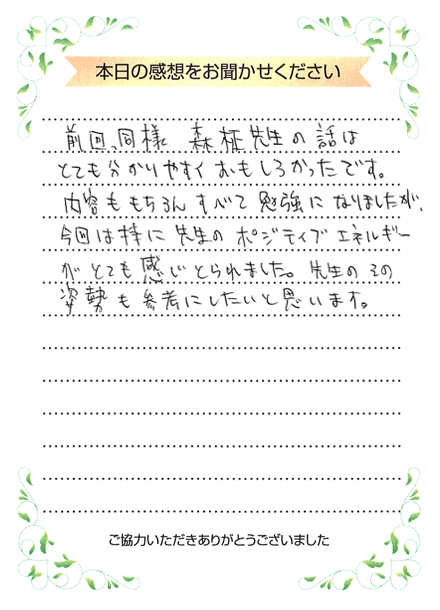 本日の感想をお聞かせください
前回、同様 森柾先生の話は
とても分かりやすくおもしろかったです。
内容ももちろんすべて勉強になりましたが、
今回は特に先生のポジティブエネルギー
がとても感じとられました。先生のその
姿勢も参考にしたいと思います。
ご協力いただきありがとうございました